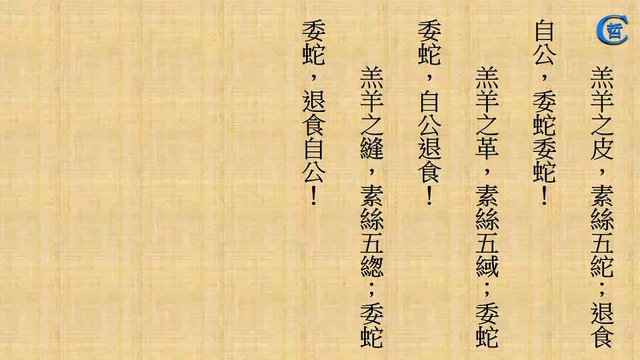 哲
羔羊之皮，素絲五紽；退食
自公，委蛇委蛇！
羔羊之革，素絲五緎；委蛇
委蛇，自公退食！
羔羊之縫，素絲五緫；委蛇
委蛇，退食自公！